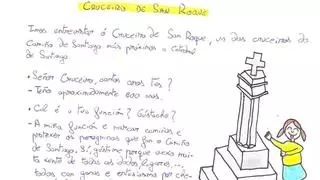 CRUCEIRO DE SAN ROQUE
Imos entrevistar ó Cruceiro de San Roque, un dos cruceiros do
Camiño de Santiago máis próximos a Catedral
de Santiago.
- Señor Cruceiro, cantos anos ten?
- Teño aproximadamente 600 anos.
- Cal é o tua función? Gústache?
- A miña función é marcar camiños e
protexer os peregrinos que fan o Camiño
de Santiago. Sí, gústame porque vexo moita
xente de todos os lados
todos, con ganas e